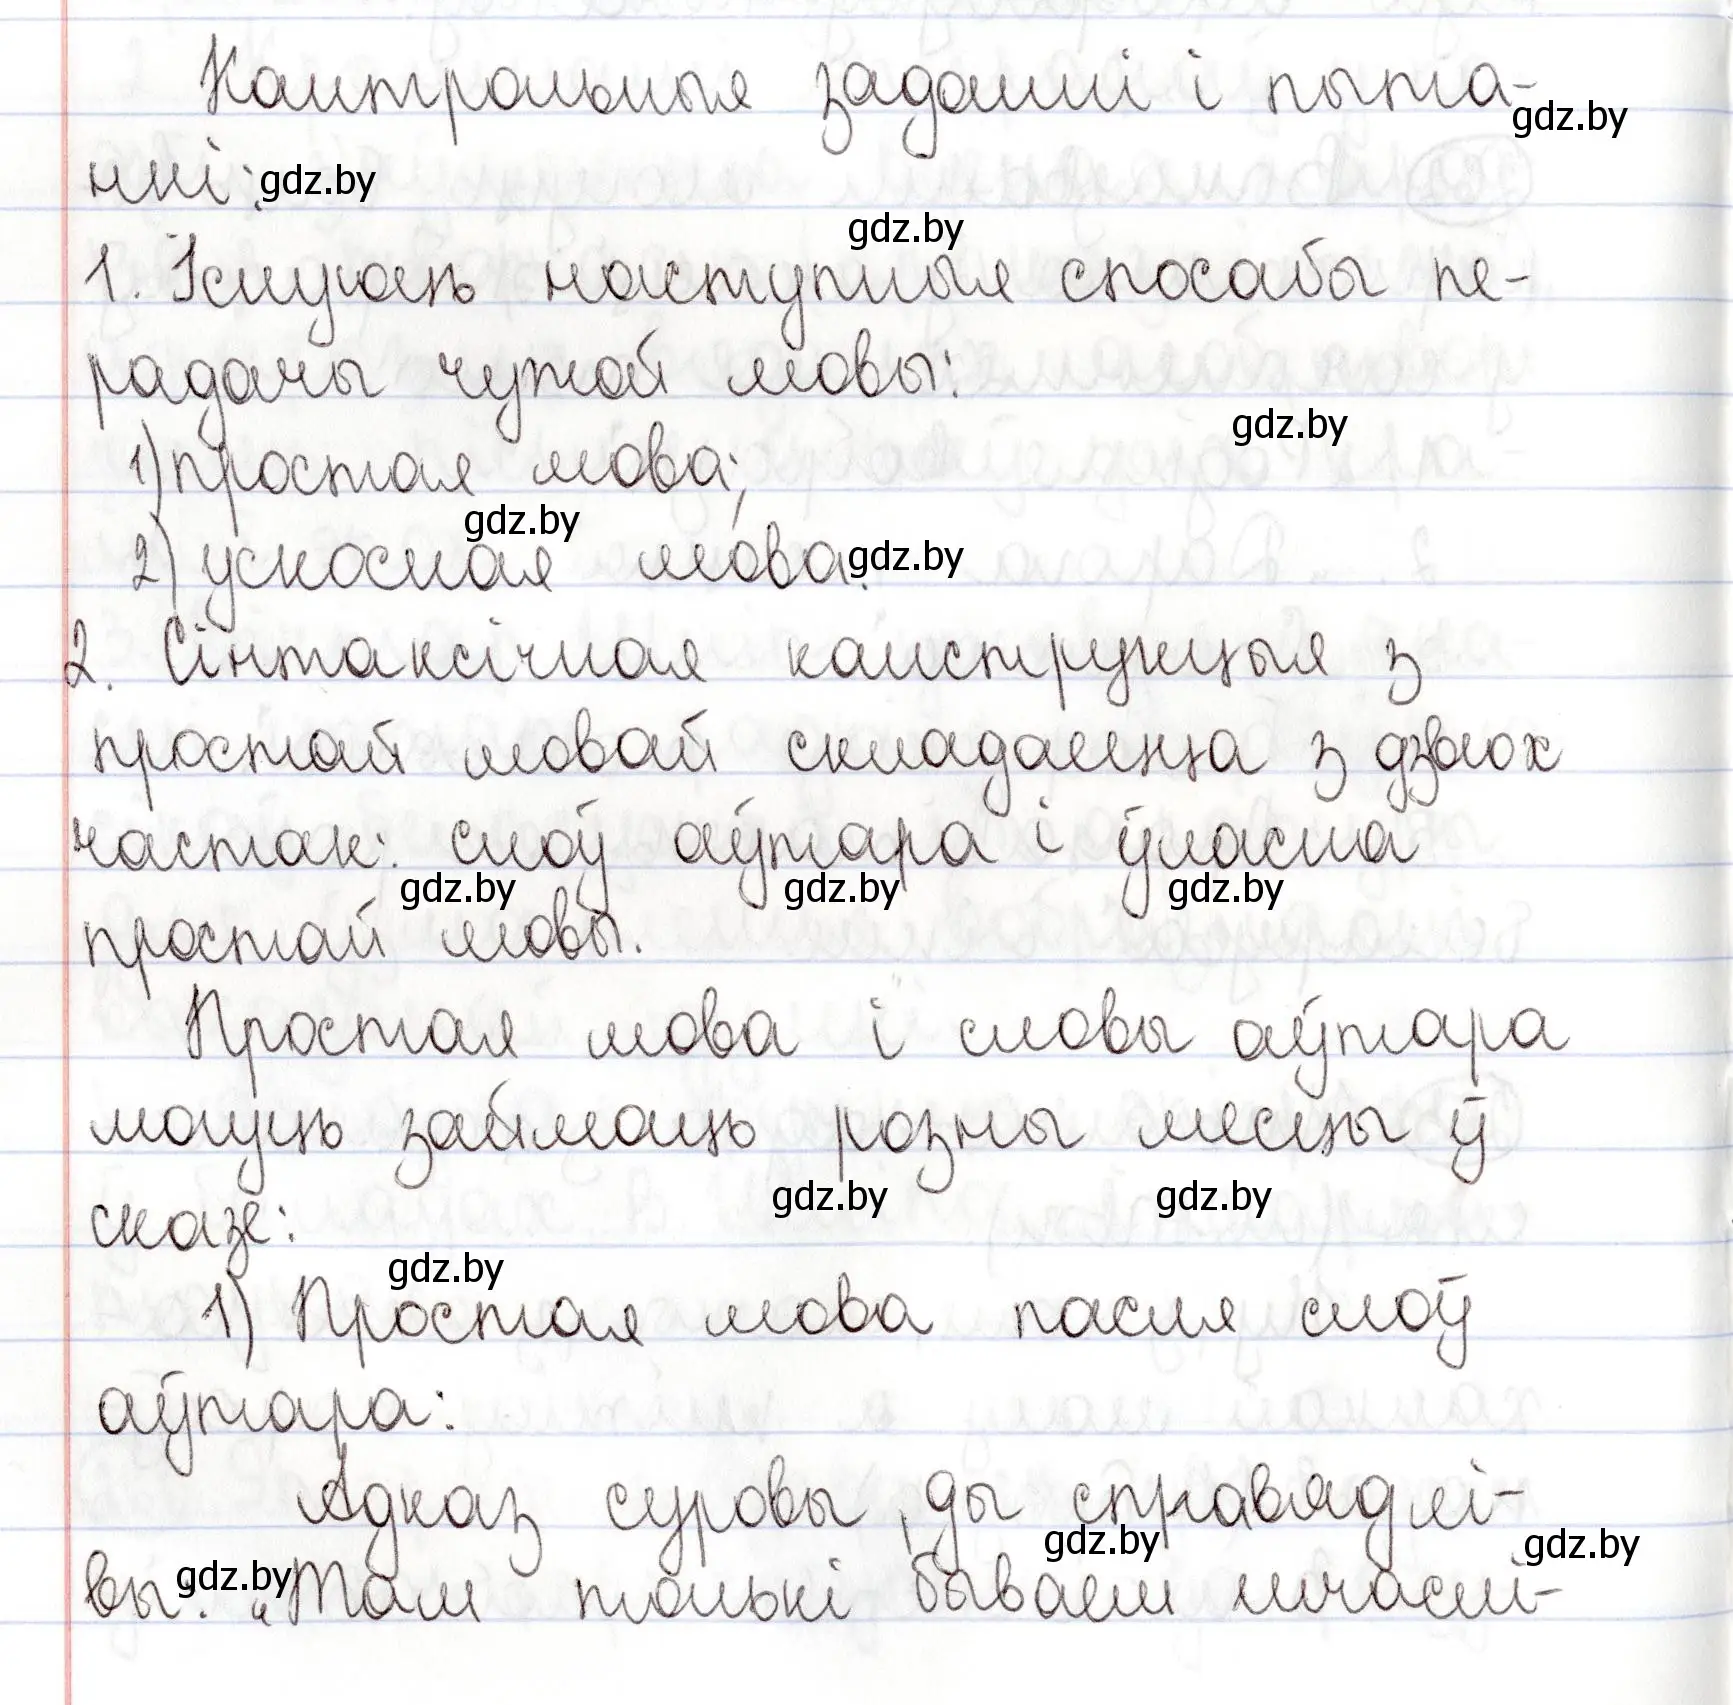 Кантрольныя заданні і пыта-
gdz.by
нні: gdz.by
gdz.by
1. Існуюць наступныя спосабы пе-
радачы чужой мовы:
gdz.by
1) простая мова;
gdz.by
2) ускосная мова. gdz.by
2. Сінтаксічная канструкцыя з
простай мовай складаецца з дзвюх
частак: слоў аўтара і ўласна
gdz.by gdz.by gdz.by
простай мовы.
Простая мова і словы аўтара
могуць займаць розны месцы ў
gdz.by gdz.by
сказе:
gdz.by
1) Простая мова пасля слоў
аўтара:
Адказ суровы, ды справядлі-
gdz.by gdz.by
вы: gdz.by „Там толькі бываем шчаслі-